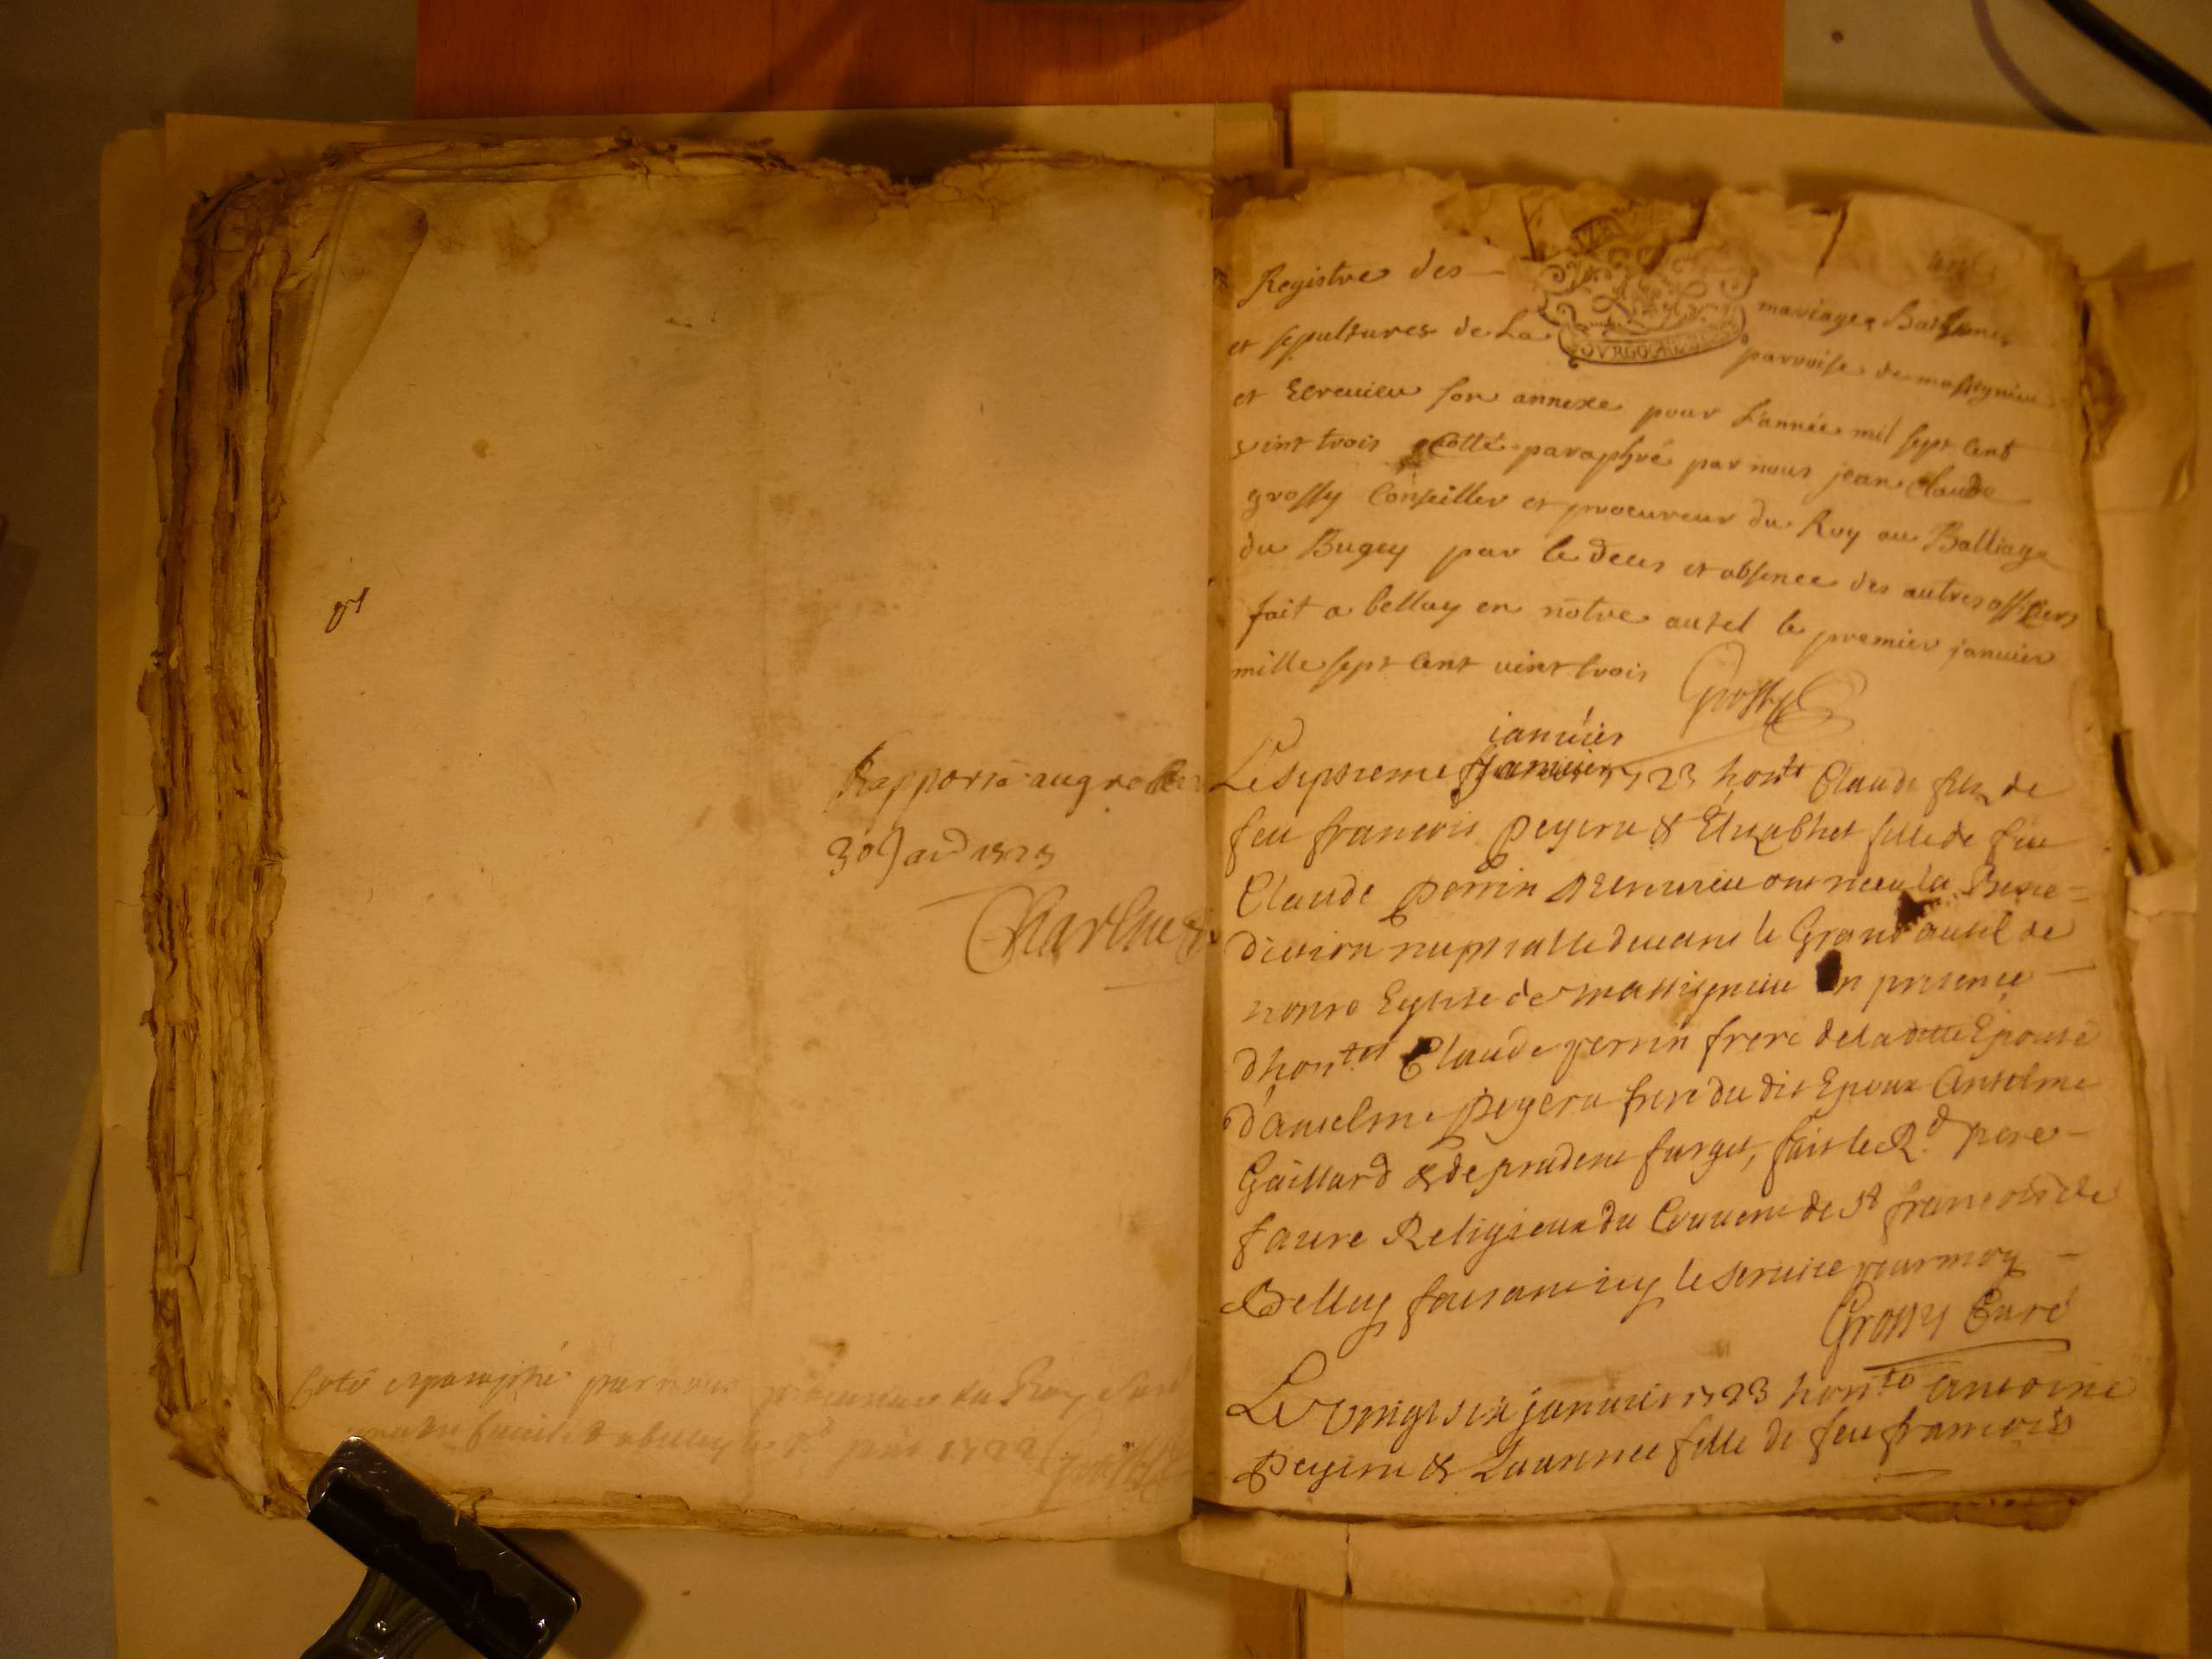 Rapporté au greffe
30 Janv 1723
Coté et paraphé par nous procureur du Roy
Registre des mariages Batesmes
et sepultures de La parroisse de massignieu
et Ecrevieu son annexe pour L'année mil sept cent
vint trois Cotté paraphré par nous jean Claude
grossy Conseiller et procureur du Roy au Balliage
du Bugey par le deces et absence des autres officiers
fait a bellay en notre autel le premier janvier
mille sept cent vint trois Grossy
ianvier
Le septieme janvier 1723 hon.te Claude fils de
feu francois peyeru & Elizabhet fille de feu
Claude perrin ont receu la Bene=
diction nuptialle devant le Grand autel de
nostre Eglise de massignieu En presence
dhon.tes Claude perrin frere de la ditte Epouse
d'anselme peyeru frere du dit Epoux Anselme
Gaillard & de prudent furget, fait le R.d pere
faure Religieux du Couvent de St francois de
Belley faisant icy le service pour moy
Grossy Curé
Le vingt six janvier 1723 hon.te antoine
peyeru & Lauance fille de feu francois